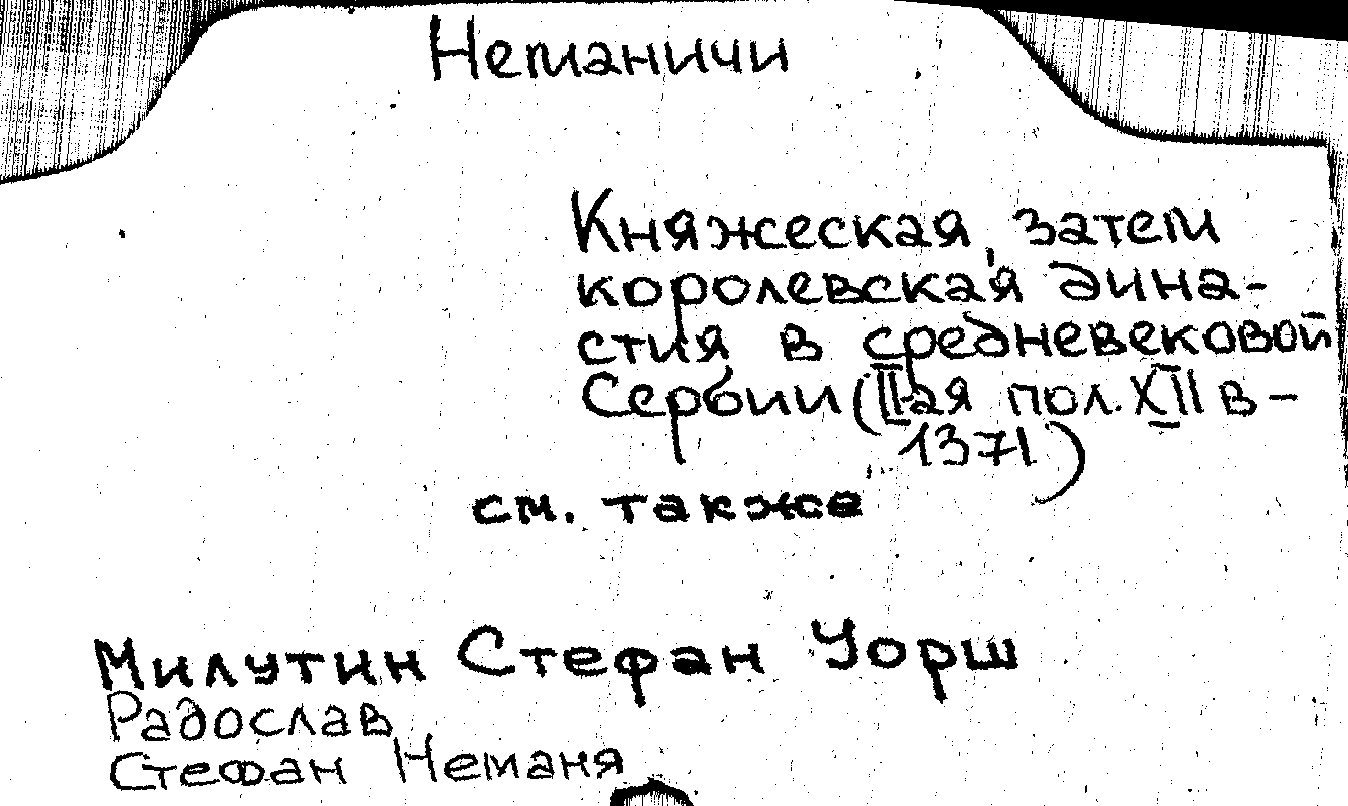 Неманичи
Княжеская, затем
королевская дина-
стия в средневековой
Сербии (II-ая пол. XII в -
1371)
см. также
Милутин Стефан Уорш
Радослав
Стефан Неманя